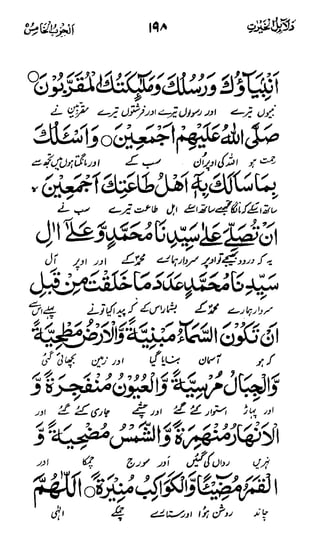 دلائل الخیرات ۱۹۸ الحزب الخامس
اَنْبِيَآؤُكَ وَرُسُلُكَ وَمَلٰٓئِكَتُكَ الْمُقَرَّبُوْنَ
نبیوں تیرے اور رسولوں تیرے اور فرشتوں تیرے مقربین نے
صَلَّى اللّٰهُ عَلَيْهِمْ اَجْمَعِيْنَ وَاَسْئَلُكَ
رحمت ہو اللہ کی اوپر اُن سب کے اور مانگتا ہوں میں تجھ سے
بِمَا سَاَلَكَ بِهٖٓ اَهْلُ طَاعَتِكَ اَجْمَعِيْنَ
ساتھ اسکے کہ مانگا تجھسے ساتھ اسکے اہل طاعت تیرے سب نے
اَنْ تُصَلِّيَ عَلٰى سَيِّدِنَا مُحَمَّدٍ وَّعَلٰٓى اٰلِ
یہ کہ درود بھیجے تو اوپر سردار ہمارے محمدؐ کے اور اوپر آل
سَيِّدِنَا مُحَمَّدٍ عَدَدَ مَا خَلَقْتَ مِنْ قَبْلِ
سردار ہمارے محمدؐ کے بشمار اس کے کہ پیدا کیا تونے پہلے اس سے
اَنْ تَكُوْنَ السَّمَآءُ مَبْنِيَّةً وَّالْاَرْضُ مَطْحِيَّةً
کہ ہو آسمان بنایا گیا اور زمین بچھائی گئی
وَّالْجِبَالُ مُرْسِيَةً وَّالْعُيُوْنُ مُنْفَجِرَةً وَّ
اور پہاڑ استوار کئے گئے اور چشمے جاری کئے گئے اور
الْاَنْهَارُ مُنْهَمِرَةً وَّالشَّمْسُ مُضْحِيَةً وَّ
نہریں رواں کی گئیں اور سورج چمکا اور
الْقَمَرُ مُضِيْئًا وَّالْكَوَاكِبُ مُنِيْرَةً اَللّٰهُمَّ
چاند روشن ہوا اور ستارے چمکے الٰہی